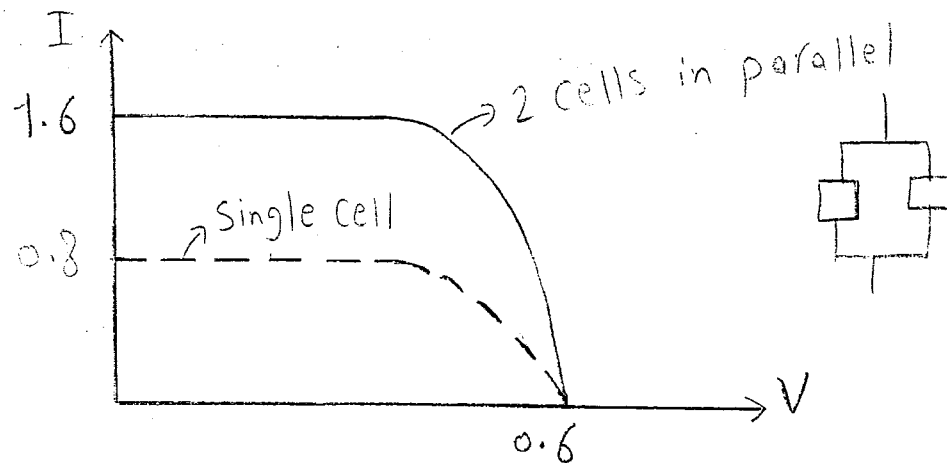 I
1.6
2 cells in parallel
single cell
0.8
V
0.6